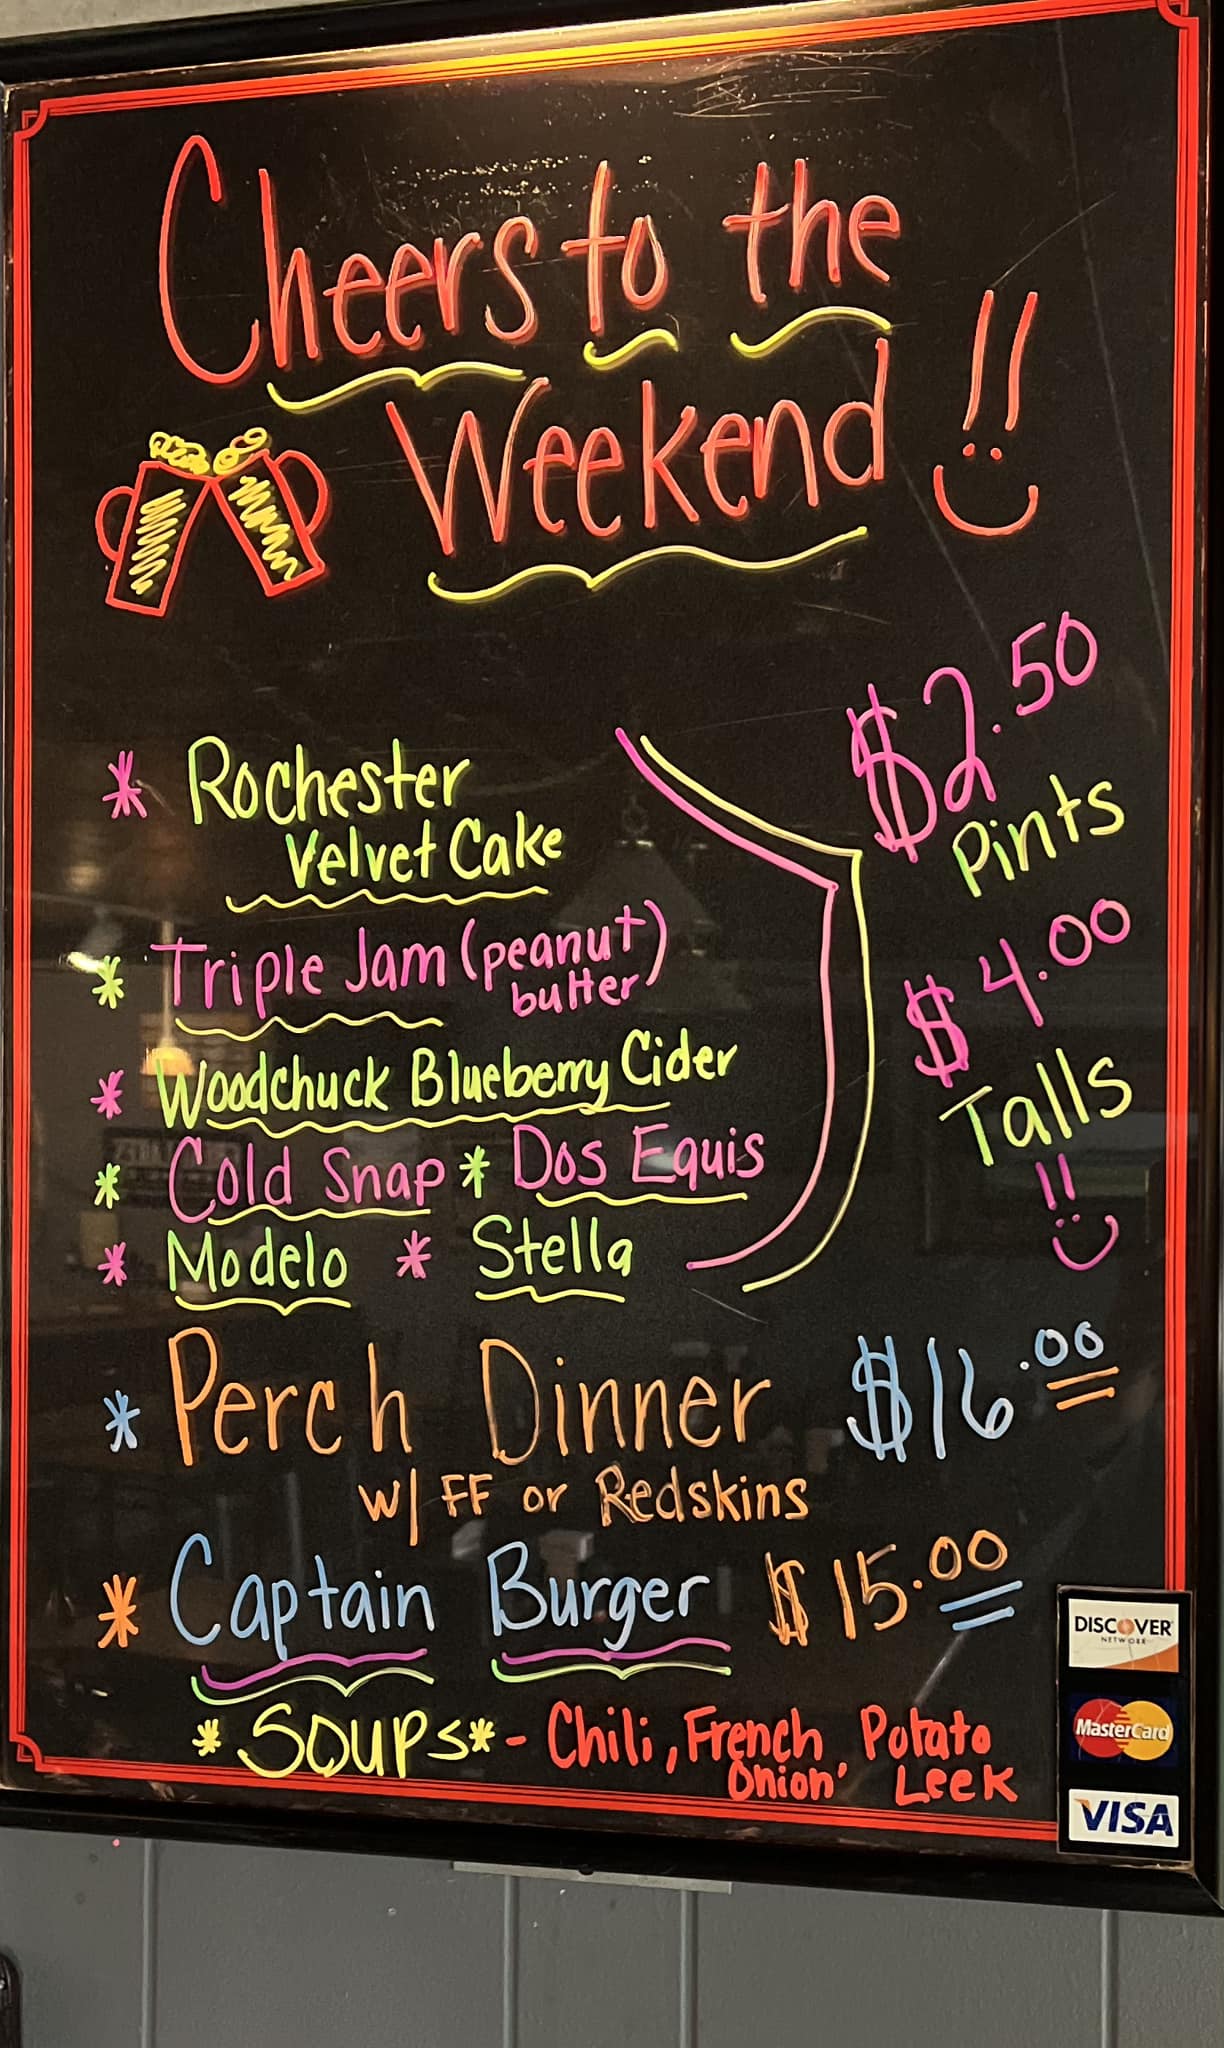 Cheers to the
Weekend !!
* Rochester
Velvet Cake
* Triple Jam (peanut
butter)
* Woodchuck Blueberry Cider
* Cold Snap * Dos Equis
* Modelo * Stella
$2.50
Pints
$4.00
Talls
!!
* Perch Dinner $16.00
w/ FF or Redskins
* Captain Burger $15.00
*Soups* - Chili, French Onion, Potato Leek
DISCOVER
NETWORK
MasterCard
VISA